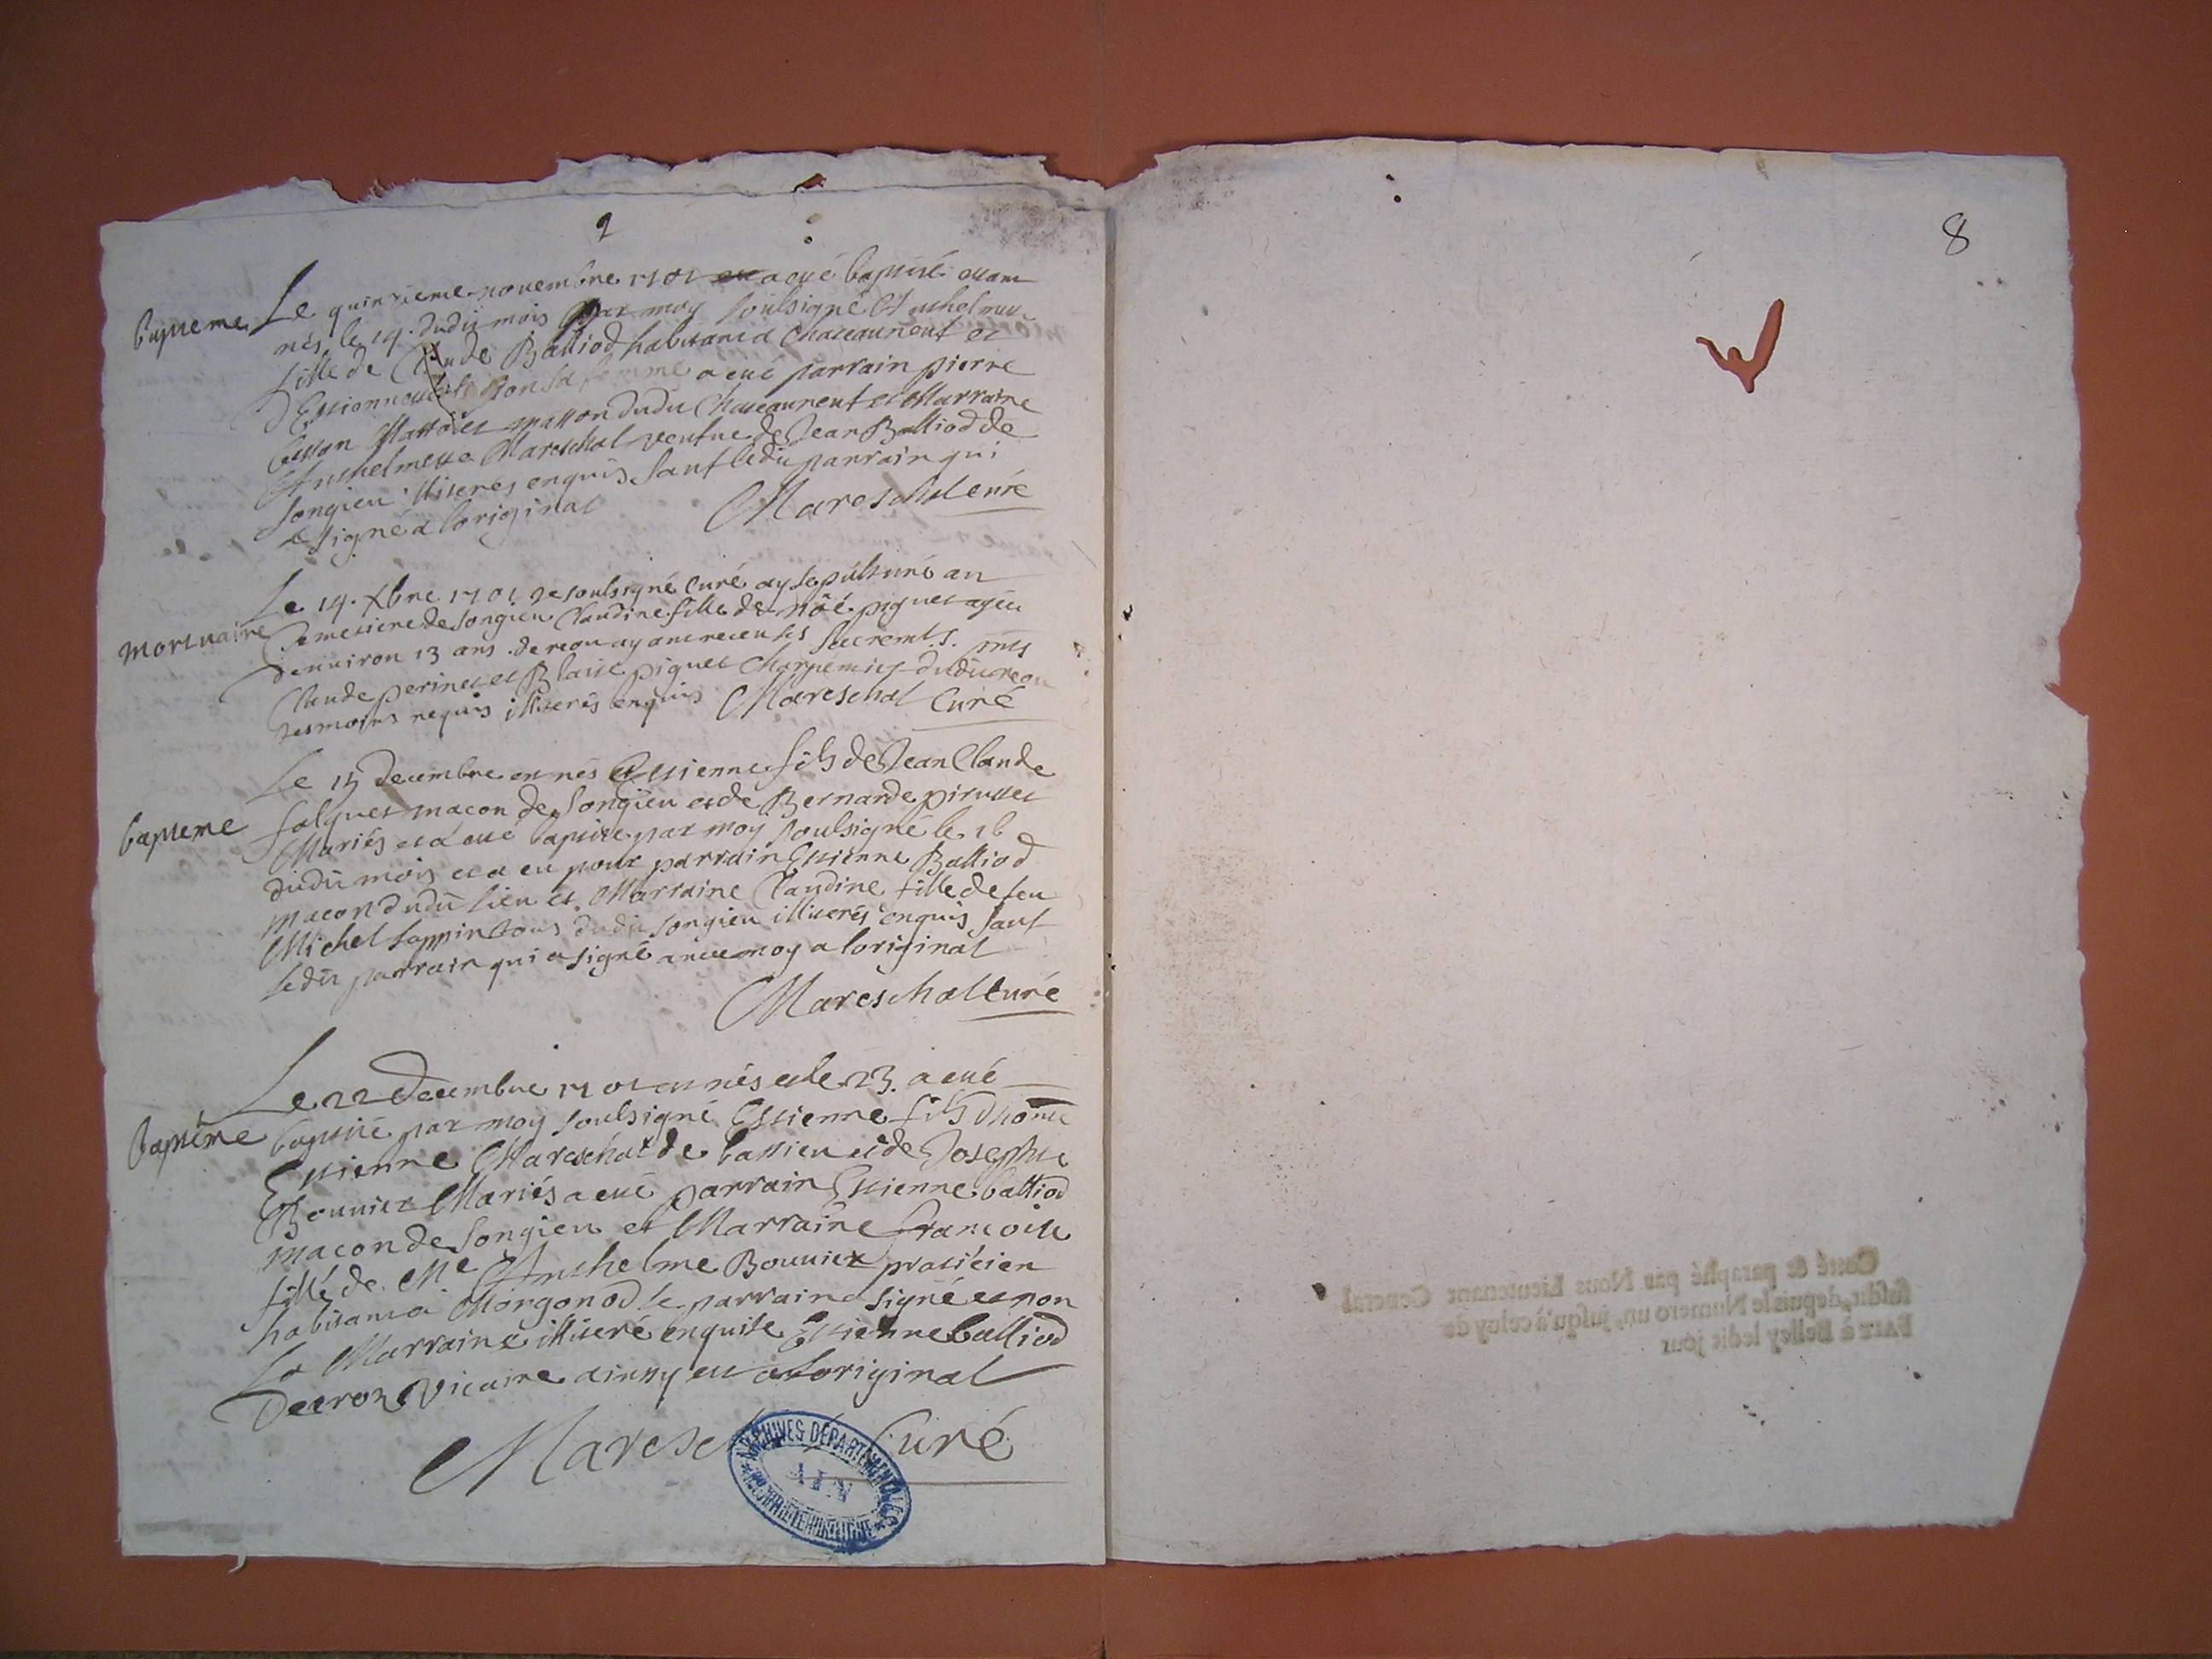 9
bapteme Le quinzieme novembre 1701 a eté baptisé etant
nés le 14. dudit mois par moy soubsigné Anthelmete
fille de Claude Balliod habitant a Chateauneuf et
d'Estiennette sa femme a eut parrain pierre
besson masson dudit Chateauneuf et Marraine
Anthelmette Mareschal veufue de Jean Balliod de
songieu illiterés enquis sauf ledit parrain qui
a signé a loriginal Mareschal curé
mortuaire Le 14. Xbre 1701 Je soubsigné Curé ay sepulturé au
Cemetiere de songieu Claudine fille de Noé piguet agée
denuiron 13 ans de reou ayant receu ses sacremts. pnts
Claude perinet et Blaise piguet Charpentier dudit reou
tesmoins requis illiterés enquis Mareschal Curé
bapteme Le 15 decembre est nés Estienne fils de Jean Claude
falquet macon de songieu et de Bernarde pirusset
Mariés et a eté baptisé par moy soubsigné le 16
dudit mois et a eu pour parrain Estienne Balliod
macon dudit lieu et Marraine Claudine fille de feu
Michel sappin tous dudit songieu illiterés enquis sauf
ledit parrain qui a signé avec moy a loriginal
Mareschal Curé
baptême Le 22 decembre 1701 est nés et le 23. a eté
baptisé par moy soubsigné Estienne fils dhonte
Estienne Mareschal de bassieu et de Josephte
Bouvier Mariés a eut parrain Estienne balliod
macon de songieu et Marraine francoise
fille de Me Anthelme Bouvier praticien
habitant a Morgonod le parrain a signé et non
la Marraine illiteré enquise Estienne balliod
Decroz Vicaire ainsy est a loriginal
Mareschal Curé
ARCHIVES DÉPARTEMENTALES
AIN
8
Cotté & paraphé par Nous Lieutenant General
susdit, depuis le Numero un, jusqu'à celuy de
FAIT à Belley ledit jour